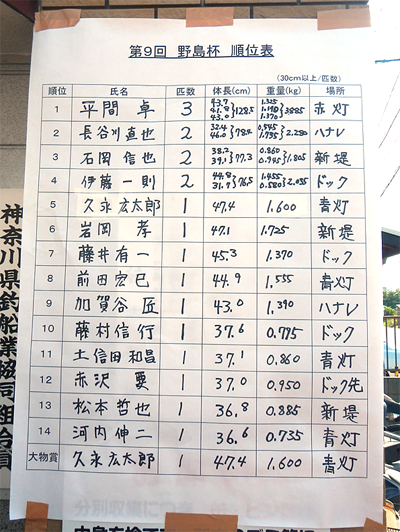 第9回 野島杯 順位表
(30cm以上/匹数)
順位 氏名 匹数 体長(cm) 重量(kg) 場所
1 平間 卓 3 43.7 41.8 43.0 }128.5 1.325 1.190 1.370 }3.885 赤灯
2 長谷川直也 2 32.4 46.0 }78.4 0.545 1.735 }2.280 ハナレ
3 石岡 信也 2 38.2 39.1 }77.3 0.860 0.945 }1.805 新堤
4 伊藤 一則 2 44.8 31.7 }76.5 1.455 0.580 }2.035 ドック
5 久永宏太郎 1 47.4 1.600 青灯
6 岩岡 孝 1 47.1 1.725 新堤
7 藤井有一 1 45.3 1.370 ドック
8 前田宏巳 1 44.9 1.555 青灯
9 加賀谷 匠 1 43.0 1.390 ハナレ
10 藤村信行 1 37.6 0.775 ドック
11 土信田和昌 1 37.1 0.860 青灯
12 赤沢 要 1 37.0 0.950 ドック先
13 松本哲也 1 36.8 0.885 新堤
14 河内伸二 1 36.6 0.735 青灯
大物賞 久永宏太郎 1 47.4 1.600 青灯
神奈川県釣船業協同組合員